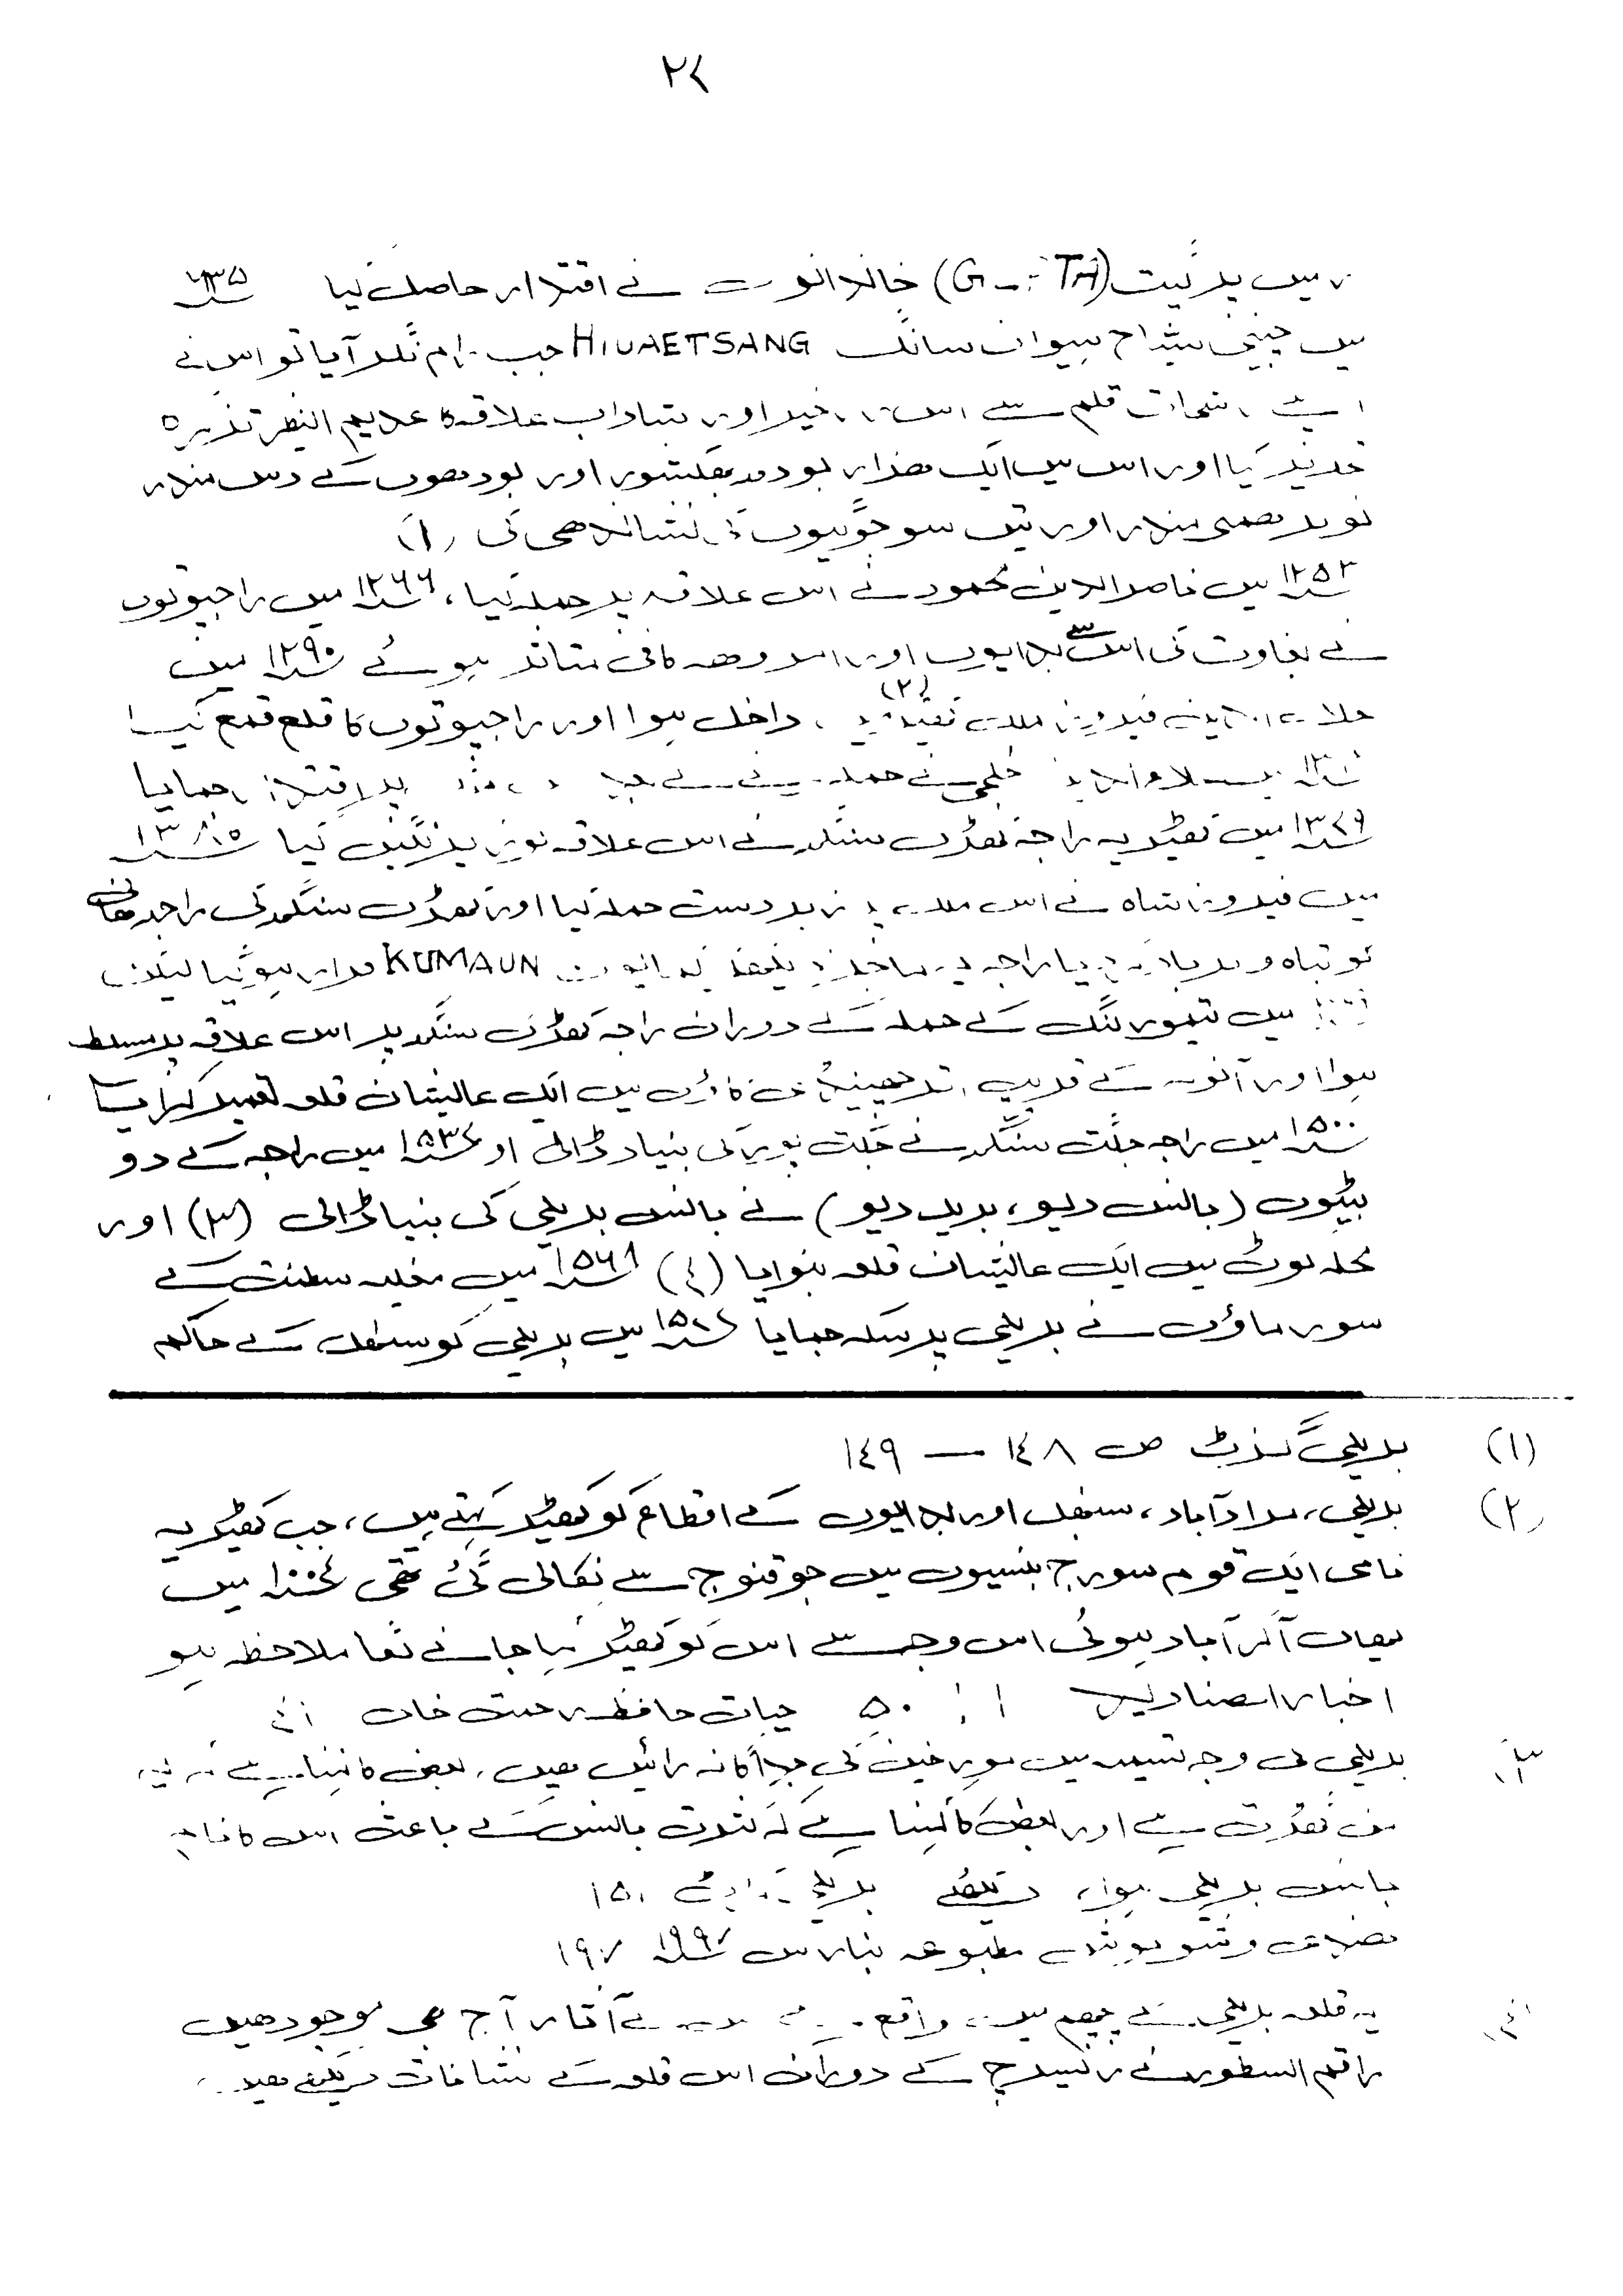 ۲۷
میں پرگیت (G TA) خاندانوں نے اقتدار حاصل کیا ۶۳۵ء
میں چینی سیاح ہیوان سانگ HIUAETSANG جب رام نگر آیا تو اس نے
اپنے رشحات قلم سے اس خیز اور شاداب علاقہ کا عدیم النظیر تذکرہ
تحریر کیا اور اس میں ایک ہزار بودھ بھکشوں اور بودھوں کے دس مندر
نو برھمی مندر اور تین سو جوگیوں کی نشاندھی کی (۱)
۱۲۵۳ء میں ناصر الدین محمود نے اس علاقہ پر حملہ کیا، ۱۲۶۶ء میں راجپوتوں
نے بغاوت کی اس سے بدایوں اور امروھہ کافی متاثر ہوئے ۱۲۹۰ء میں
فیروز (۲) داخل ہوا اور راجپوتوں کا قلع قمع کیا
خلجی نے حملہ پر اقتدار جمایا
۱۳۷۹ء میں کھیڑیہ راجہ کھڑک سنگھ نے اس علاقہ کو زیر نگیں کیا ۱۳۸۵ء
میں فیروز شاہ نے اس علاقہ پر زبردست حملہ کیا اور کھڑک سنگھ کی راجدھانی
کو تباہ و برباد کر دیا راجہ KUMAUN فرار ہو گیا لیکن
میں تیمور لنگ کے حملہ کے دوران راجہ کھڑک سنگھ پھر اس علاقہ پر مسلط
ہوا اور آنولہ کے قریب گاؤں میں ایک عالیشان قلعہ تعمیر کرایا
۱۵۰۰ء میں راجہ جگت سنگھ نے جگت پور کی بنیاد ڈالی او ۱۵۳۷ء میں راجہ کے دو
بیٹوں (بانس دیو، بریل دیو) نے بانس بریلی کی بنیاد ڈالی (۳) اور
محلہ کوٹ میں ایک عالیشان قلعہ بنوایا (٤) ۱۵۶۹ء میں مغلیہ سلطنت کے
سورماؤں نے بریلی پر سکہ جمایا ء میں بریلی کو سنبھل کے حاکم
(۱) بریلی گزٹ ص ۱٤۸ — ۱٤۹
(۲) بریلی، مرادآباد، سنبھل اور بدایوں کے اقطاع کو کھیڑ کہتے ہیں، جب کھیڑیہ
نامی ایک قوم سورج بنسیوں میں جو قنوج سے نکالی گئی تھی میں
یہاں آکر آباد ہوئی اس وجہ سے اس کو کھیڑ کہا جانے لگا ملاحظہ ہو
اخبار الصنادید ۵۰ حیات حافظ رحمت خان
بریلی کی وجہ تسمیہ میں مورخین کی جداگانہ رائیں ھیں، بعض کا کہنا ہے کہ
ہے اور بعض کا کہنا ہے کہ کثرت بانس کے باعث اس کا نام
بانس بریلی ہوا، دیکھئے بریلی گزٹ ۱۵۰
مطبوعہ بنارس
یہ قلعہ بریلی کے پچھم میں واقع آثار آج بھی موجود ھیں
راقم السطور نے ریسرچ کے دوران اس قلعہ کے نشانات دیکھے ھیں